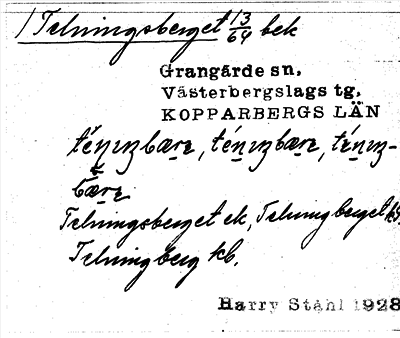 1) Telningsberget 13/64 bek
Grangärde sn.
Västerbergslags tg.
KOPPARBERGS LÄN
Telningsberget ek, Telningberget
Telningberg kb.
Harry Ståhl 1928